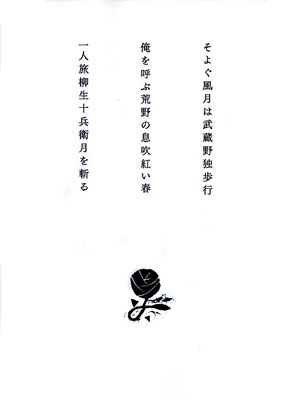 そよぐ風月は武蔵野独歩行
俺を呼ぶ荒野の息吹紅い春
一人旅柳生十兵衛月を斬る